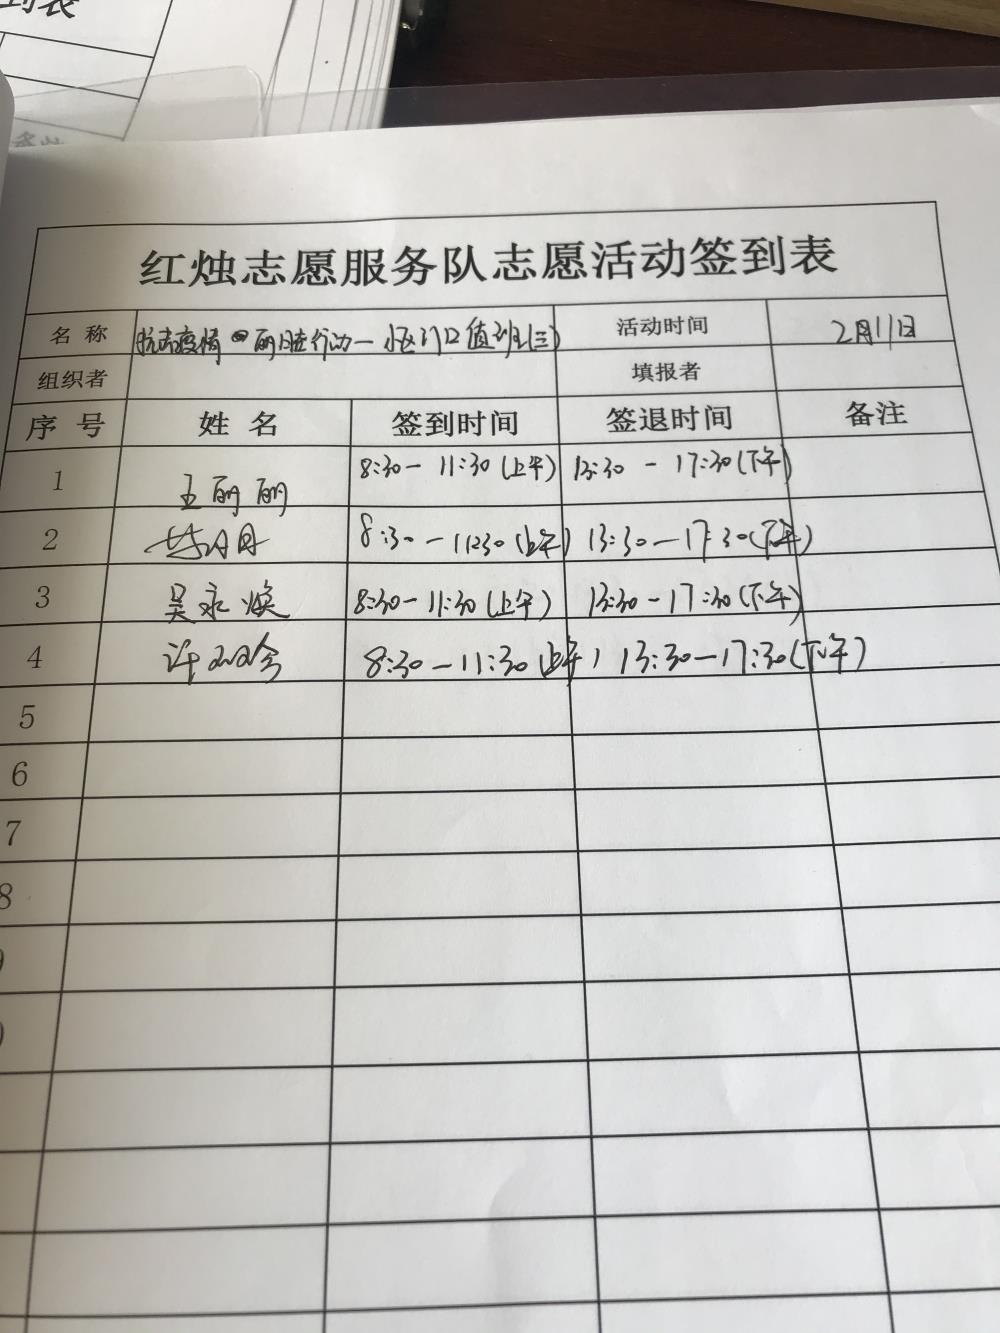 到表
红烛志愿服务队志愿活动签到表
名 称 抗击疫情 小区门口值班(三) 活动时间 2月11日
组织者 填报者
序 号 姓 名 签到时间 签退时间 备注
1 王丽丽 8:30-11:30(上午) 13:30-17:30(下午)
2 8:30-11:30(上午) 13:30-17:30(下午)
3 吴永焕 8:30-11:30(上午) 13:30-17:30(下午)
4 许 8:30-11:30(上午) 13:30-17:30(下午)
5
6
7
8